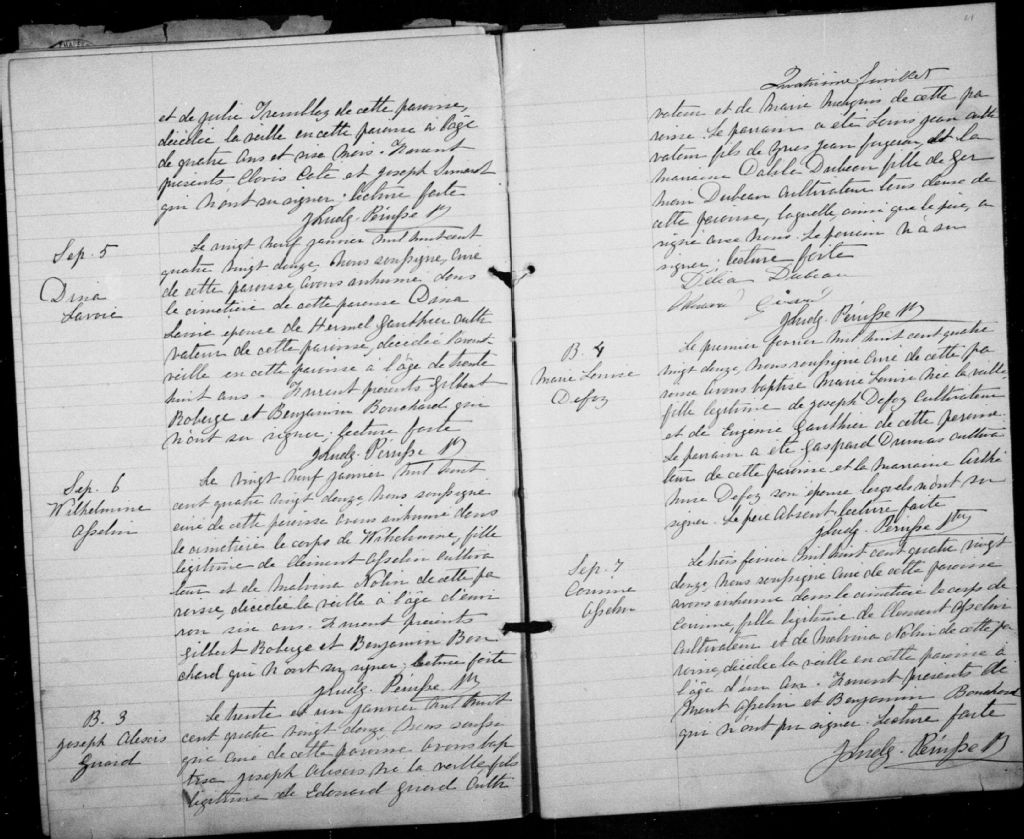 et de Julie Tremblay de cette paroisse,
décédée la veille en cette paroisse à l'âge
de quatre ans et six mois. Furent
présents Clovis Coté et Joseph Simard
qui n'ont su signer; lecture faite
J Ludg. Pérusse Ptr
Sep. 5
Dina
Lavoie
Le vingt neuf janvier mil huit cent
quatre vingt douze, nous soussigné, curé
de cette paroisse, avons inhumé dans
le cimetière de cette paroisse Dina
Lavoie épouse de Hermel Gauthier culti
vateur de cette paroisse, décédée l'avant
veille en cette paroisse à l'âge de trente
huit ans. Furent présents Gilbert
Roberge et Benjamin Bouchard qui
n'ont su signer; lecture faite
J Ludg. Pérusse Ptr
Sep. 6
Wilhelmine
Asselin
Le vingt neuf janvier mil huit
cent quatre vingt douze, nous soussigné
curé de cette paroisse avons inhumé dans
le cimetière le corps de Wilhelmine, fille
légitime de Clément Asselin cultiva
teur et de Malvina Nolin de cette pa
roisse, décédée la veille à l'âge d'envi
ron six ans. Furent présents
Gilbert Roberge et Benjamin Bou
chard qui n'ont su signer; lecture faite
J Ludg. Pérusse Ptr
B. 3
Joseph Alexis
Girard
Le trente et un janvier mil huit
cent quatre vingt douze nous soussi
gné curé de cette paroisse avons bap
tisé Joseph Alexis né la veille, fils
légitime de Edouard Girard culti
21
Quatrième feuillet
vateur et de Marie de cette pa
roisse. Le parrain a été Louis Jean culti
vateur fils de Jean forgeron, et la
marraine Délila Dubeau fille de Ger
main Dubeau cultivateur tous deux de
cette paroisse, laquelle, ainsi que le père, a
signé avec nous. Le parrain n'a su
signer; lecture faite
Délia Dubeau
Edouard Girard
J Ludg. Pérusse Ptr
B. 4
Marie Louise
Defoy
Le premier février mil huit cent quatre
vingt douze, nous soussigné curé de cette pa
roisse avons baptisé Marie Louise née la veille
fille légitime de Joseph Defoy cultivateur
et de Eugénie Gauthier de cette paroisse.
Le parrain a été Gaspard Dumas cultiva
teur de cette paroisse et la marraine Arthé
mise Defoy son épouse lesquels n'ont su
signer. Le père absent. lecture faite
J Ludg. Pérusse Ptr
Sep. 7
Corinne
Asselin
Le trois février mil huit cent quatre vingt
douze, nous soussigné curé de cette paroisse
avons inhumé dans le cimetière le corps de
Corinne, fille légitime de Clément Asselin
cultivateur et de Malvina Nolin de cette pa
roisse, décédée la veille en cette paroisse à
l'âge d'un an. Furent présents Clé
ment Asselin et Benjamin Bouchard
qui n'ont pu signer. Lecture faite
J Ludg. Pérusse Ptr